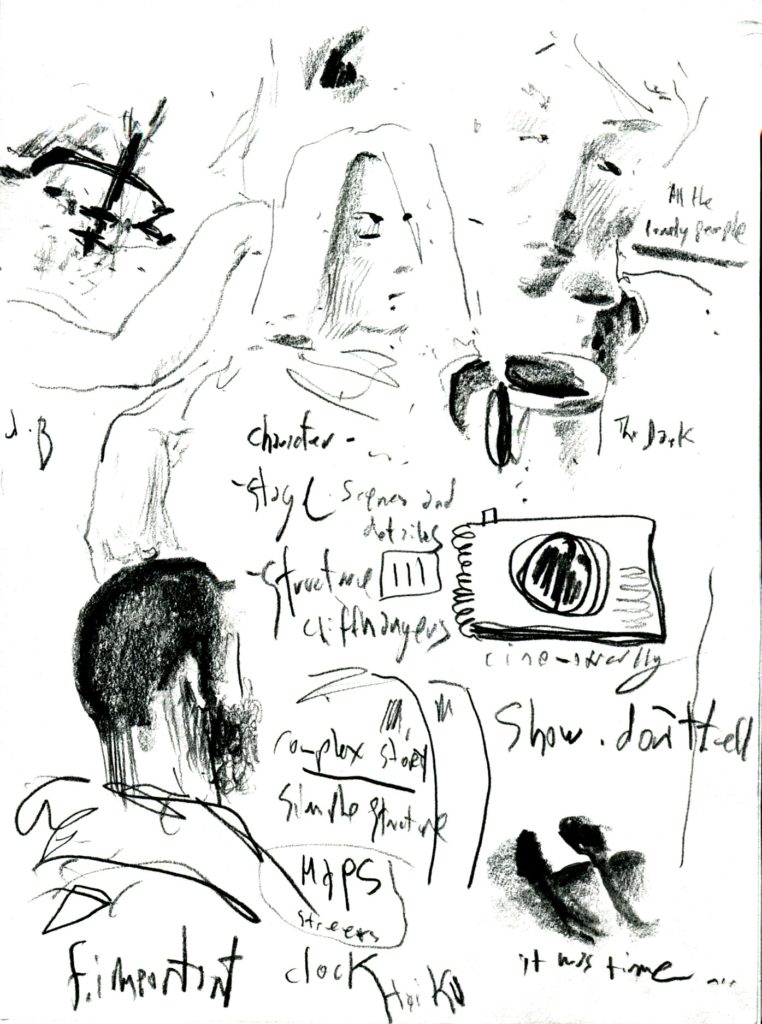 All the
lonely people
J.B
The Dark
character -
- story scenes and
details
- structure
cliffhangers
Show. don't tell
complex story
simple structure
MAPS
streets
f.important
clock
Haiku
it was time ...